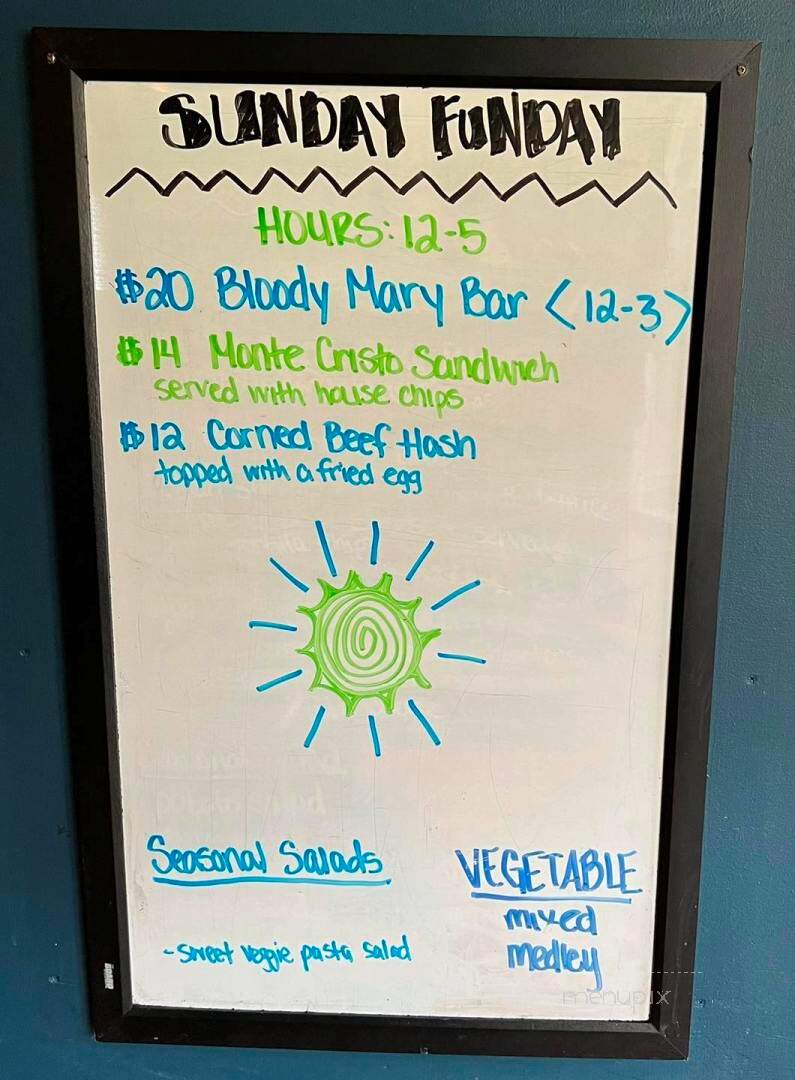 SUNDAY FUNDAY
HOURS: 12-5
$20 Bloody Mary Bar <12-3>
$14 Monte Cristo Sandwich
served with house chips
$12 Corned Beef Hash
topped with a fried egg
Seasonal Salads
- sweet veggie pasta salad
VEGETABLE
mixed
medley
menupix